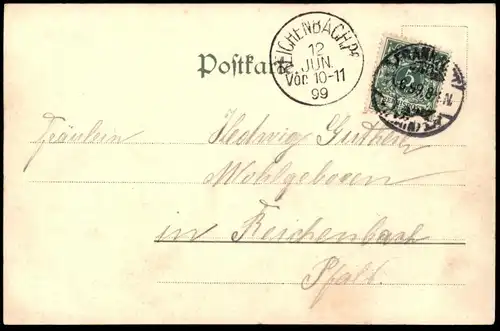 Postkarte
REICHENBACH.Pf.
12
JUN.
Vor. 10-11
99
FRANKFURT
5
Fräulein Hedwig
Wohlgeboren
in Reichenbach
Pfalz.